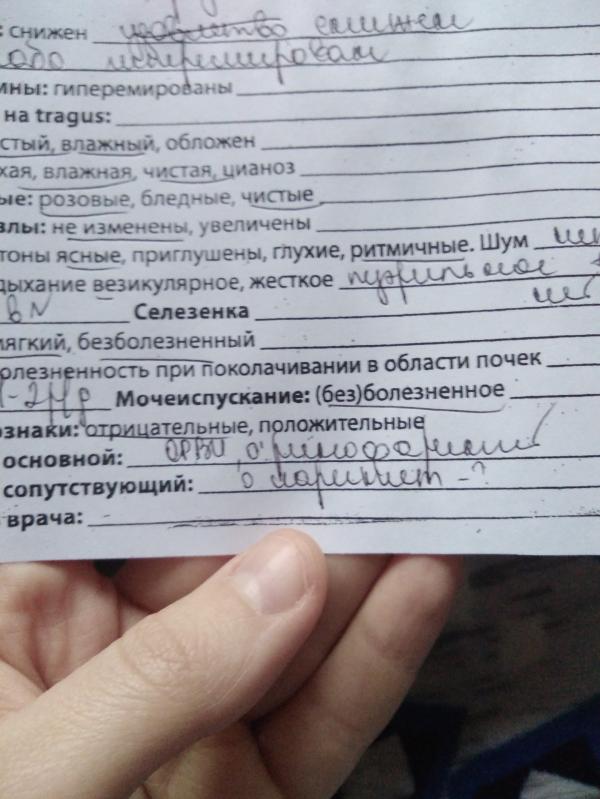 : снижен
слабо гиперемирован
ины: гиперемированы
на tragus:
стый, влажный, обложен
хая, влажная, чистая, цианоз
ые: розовые, бледные, чистые
злы: не изменены, увеличены
тоны ясные, приглушены, глухие, ритмичные. Шум
дыхание везикулярное, жесткое пуэрильное
в N Селезенка
мягкий, безболезненный
олезненность при поколачивании в области почек
1-2 р/д Мочеиспускание: (без)болезненное
ознаки: отрицательные, положительные
основной: ОРВИ, о. ринофарингит
сопутствующий: о ларингит -?
врача: